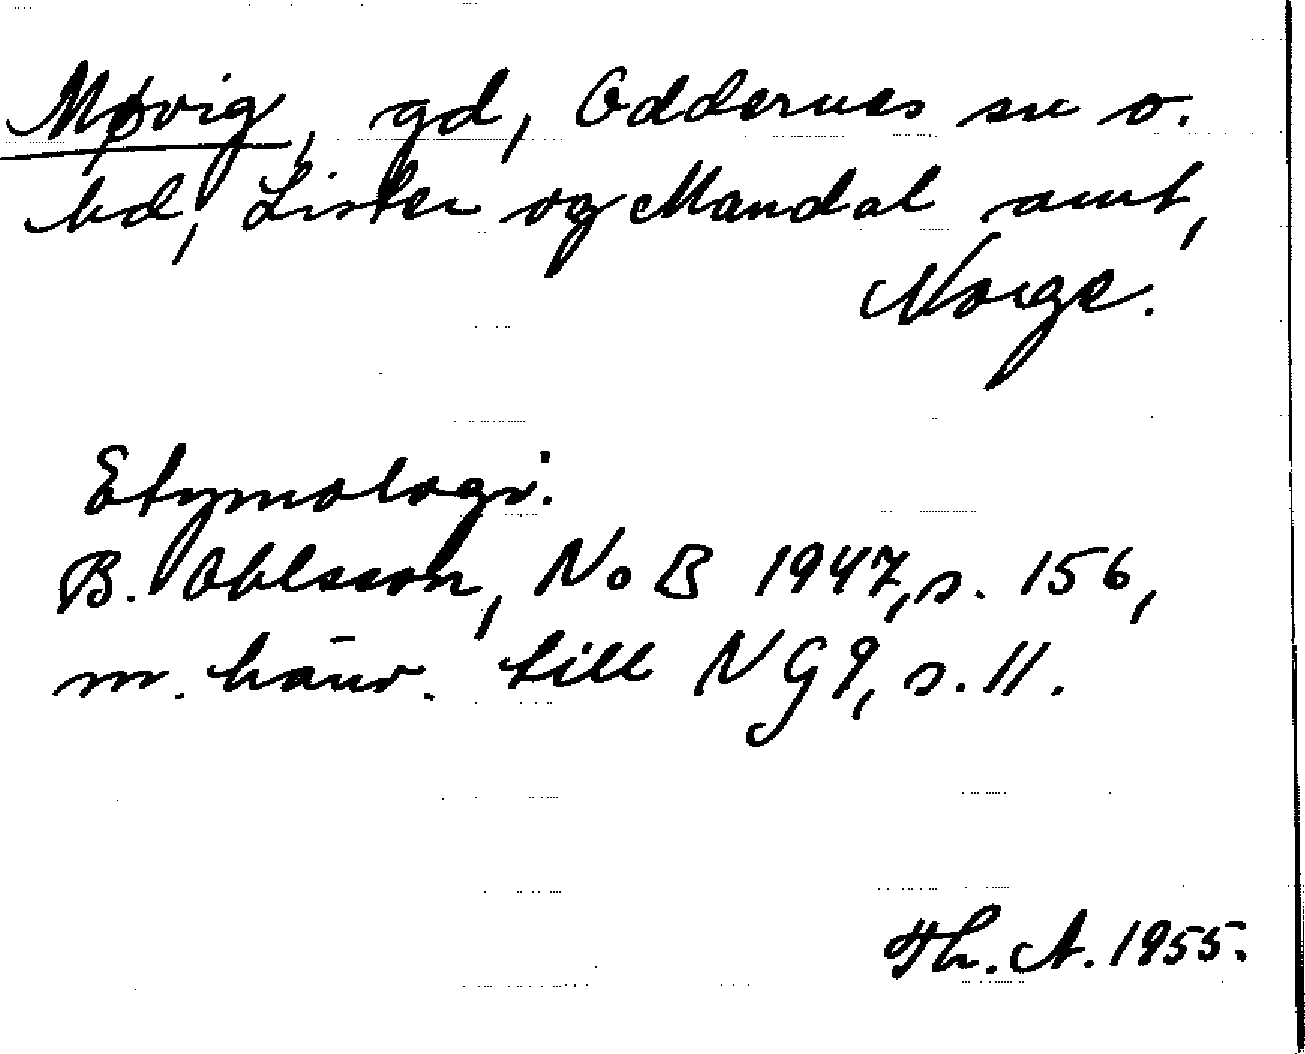 Møvig, gd, Oddernes sn o.
hd, Lister og Mandal amt,
Norge.
Etymologi:
B. Ohlsson, NoB 1947, s. 156,
m. hänv. till NG 9, s. 11.
Th. A. 1955.